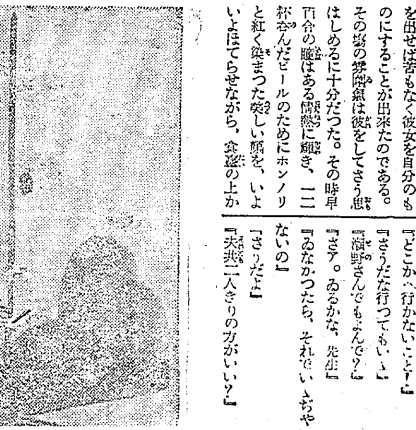 を出せば苦もなく彼女を自分のも
のにすることが出來たのである。
その場の雰圍氣は彼をしてさう思
はしめるに十分だつた。その時早
百合の瞳はある情熱に輝き、一二
杯呑んだビールのためにホンノリ
と紅く染まつた美しい顏を、いよ
いよほてらせながら、食臺の上か
『どこかへ行かないこと！』
『さうだな行つてもいゝ』
『瀨野さんでもよんで？』
『さア。ゐるかな、先生』
『ゐなかつたら、それでいゝぢや
ないの』
『さうだよ』
『夫共二人きりの方がいい？』